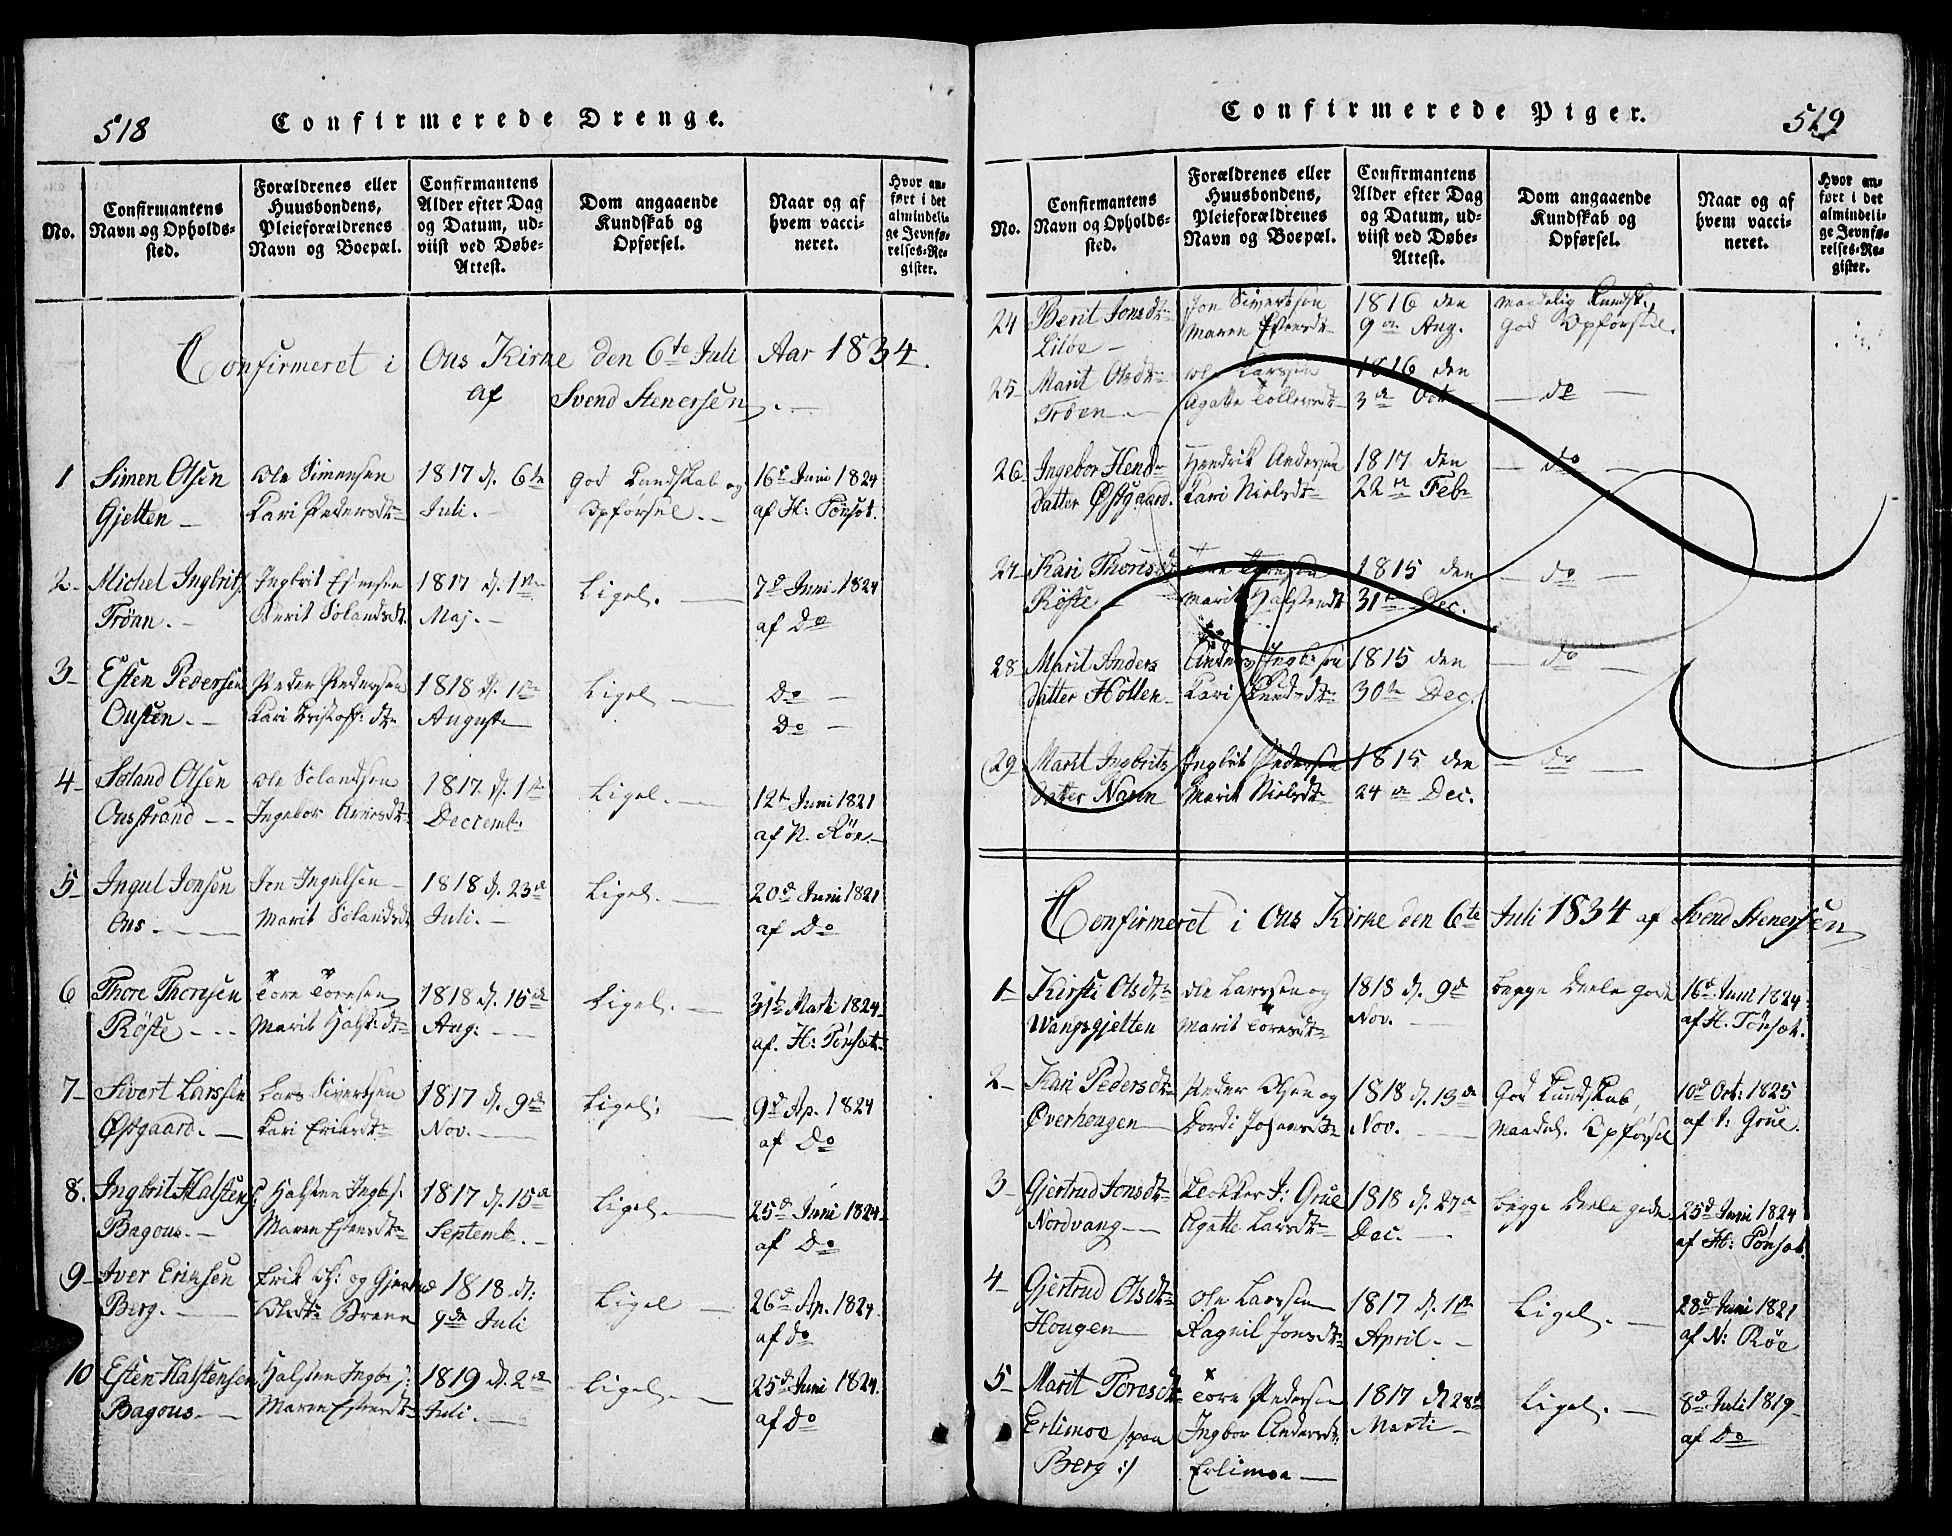 518
Confirmerede Drenge.
No.
Confirmantens
Navn og Opholds-
sted.
Forældrenes eller
Huusbondens,
Pleieforældrenes
Navn og Boepæl.
Confirmantens
Alder efter Dag
og Datum, ud-
viist ved Døbe-
Attest.
Dom angaaende
Kundskab og
Opførsel.
Naar og af
hvem vacci-
neret.
Hvor an-
ført i det
almindeli-
ge Jevnfø-
relses-Re-
gister.
Confirmeret i Ous Kirke den 6te Juli Aar 1834.
af Svend Stenersen
1 Simen Olsen
Gjelten
Ole Simensen
Kari Pedersdtr
1817 d. 6te
Juli.
god Kundskab og
Opførsel.
16d Juni 1824
af H: Tønset.
2 Michel Ingbrits
Trøan.
Ingbrit Estensen
Berit Solandsdt.
1817 d. 1te
Maj.
Ligel.
7d Juni 1824
af Do
3 Esten Pedersen
Ousten.
Peder Pedersen
Kari Kristoff: dtr
1818 d. 1te
August
Ligel
Do
Do
4 Soland Olsen
Ousstrand
Ole Solandsen
Ingebor Arnesdtr
1817 d. 1te
Decremb:
Ligel.
12t Juni 1821
af N. Røe
5 Ingul Jonsen
Ous.
Jon Ingulsen
Marit Solandsdt
1818 d. 23de
Juli.
Ligel.
20d Juni 1821
af Do
6 Thore Thoresen
Røste
Tore Toresen
Marit Halst: dtr
1818 d. 15de
Aug:
Ligel.
31t Marti 1824
af. H: Tønset:
7 Sivert Larssen
Østgaard.
Lars Sivertsen
Kari Eriksdtr
1817 d. 9de
Nov.
Ligel:
9d Ap. 1824
af Do
8. Ingbrit Halstens:
Bagous.
Halsten Ingb s:
Maren Estensdtr
1817 d. 15de
Septemb.
Ligel.
25d Juni 1824
af Do
9 Iver Eriksen
Berg.
Erik Ol: og Gjertrud
Olsdtr
1818 d:
9de Juli
Ligel
26d Ap. 1824.
af do
10 Esten Halstensen
Bagous.
Halsten Ingb s:
Maren Estensdtr
1819 d. 2de
Juli.
Ligel.
25d Juni 1824.
af Do
Confirmerede Piger.
519
No.
Confirmantens
Navn og Opholds-
sted.
Forældrenes eller
Huusbondens,
Pleieforældrenes
Navn og Boepæl.
Confirmantens
Alder efter Dag
og Datum, ud-
viist ved Døbe-
Attest.
Dom angaaende
Kundskab og
Opførsel.
Naar og af
hvem vacci-
neret.
Hvor an-
ført i det
almindeli-
ge Jevnfø-
relses-Re-
gister.
24 Berit Jonsdtr
Lilbe
Jon Sivertsøn
Maren Estensdtr
1816 den
9de Aug.
maadelig Kundsk.,
god Opførsel.
25 Marit Olsdtr
Trøen
Ole Larssøn
Agatte Tollevsdtr
1816 den
3de Oct
do
26. Ingebor Hend
Datter Østgaard.
Hendrik Andersøn
Kari Nielsdtr
1817 den
22de Feb
do
27 Kari Thoresd
Røste
Tore Toresen
Marit Halstendt
1815 den
31te Dec.
do
28 Marit Anders
Datter Hølten
Anders Ingb: søn
Kari Knudsdtr
1815 den
30te Dec.
do
29 Marit Ingbrits
Datter Narin
Ingbrit Pedersen
Marit Nielsdtr
1815 den
24de Dec.
do
Confirmeret i Ous Kirke den 6te Juli 1834 af Svend Stenersen
1 Kirsti Olsdtr
Wangsgjelten
Ole Larssen og
Marit Toresdtr
1818 d. 9de
Nov.
begge Deele gode
16d Juni 1824.
af H. Tønset.
2 Kari Pedersdtr
Øverhougen
Peder Olsen og
Dordi Johansdtr
1818 d. 13de
Nov.
God Kundskab,
maadel. Opførsel
10d Oct: 1825
af I: Grue.
3 Gjertrud Jonsdtr
Nordvang
Klokker J: Grue
Agatte Larsdtr
1818 d. 27de
Dec.
begge Deele gode
25d Juni 1824
af H: Tønset.
4 Gjertrud Olsdtr
Hougen
Ole Larssen
Ragnil Jonsdtr
1817 d. 1te
April.
Ligel.
28d Juni 1821
af N: Røe
5 Marit Toresdtr
Erlimoe /: paa
Berg :/
Tore Pedersen
Ingbor Andersdt:
Erlimoe
1817 d 28de
Marti
Ligel.
8d Juli 1819
af Do